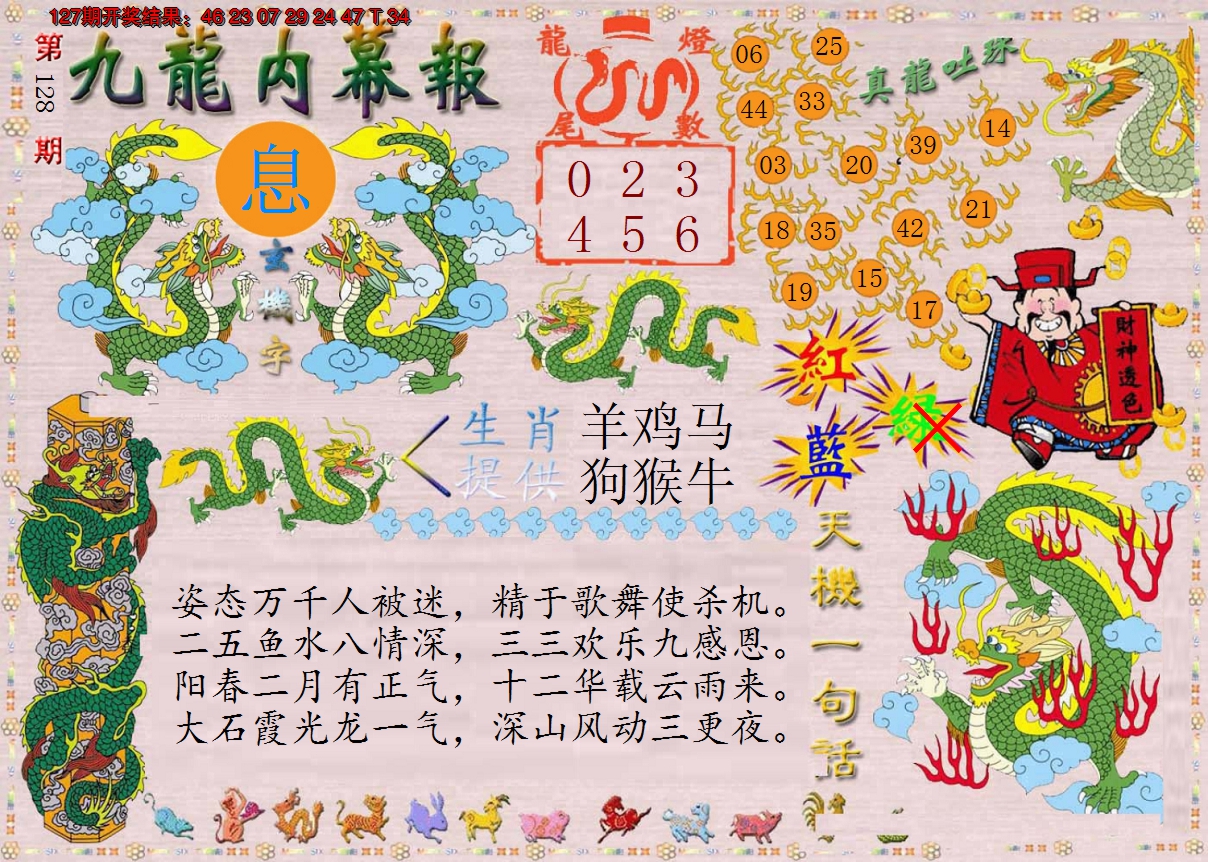 127期开奖结果：46 23 07 29 24 47 T 34
第128期
九龍内幕報
息
玄機字
龍燈尾數
0 2 3
4 5 6
真龍吐珠
06 25
44 33
03 20 39 14
18 35 42 21
19 15 17
財神透色
紅
綠
藍
生肖提供
羊鸡马
狗猴牛
天機一句话
姿态万千人被迷，精于歌舞使杀机。
二五鱼水八情深，三三欢乐九感恩。
阳春二月有正气，十二华载云雨来。
大石霞光龙一气，深山风动三更夜。